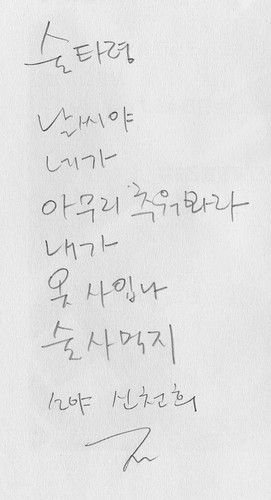 술타령
날씨야
네가
아무리 추워봐라
내가
옷 사입나
술 사먹지
소야 신천희